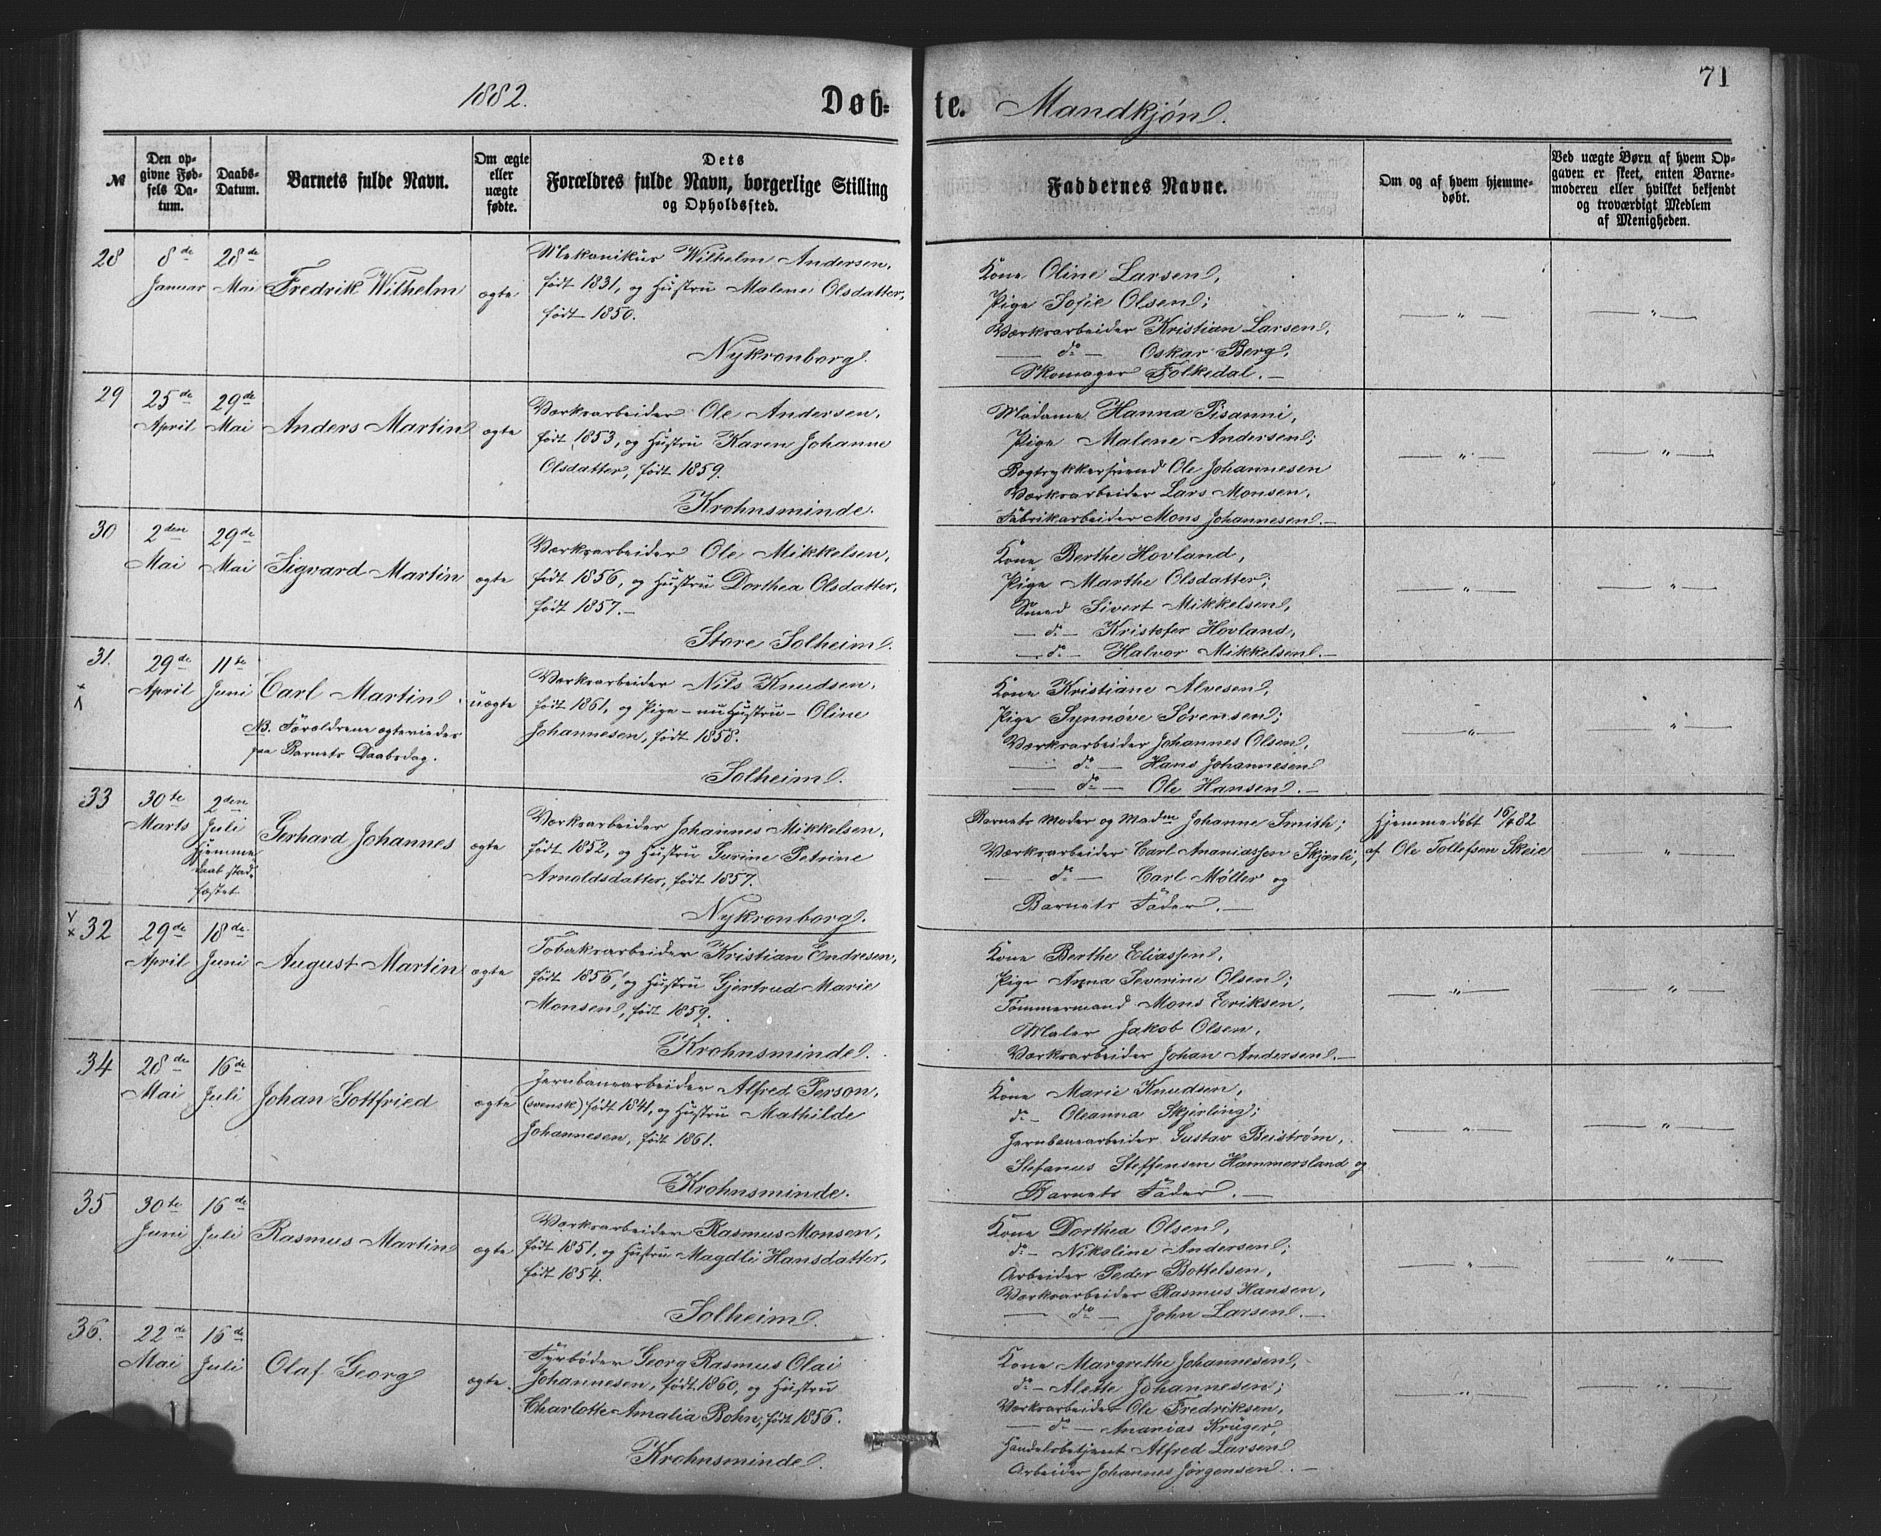 71
1882.
Døb-
te.
Mandkjøn.
№
Den op-
givne Fød-
sels Da-
tum.
Daabs-
Datum.
Barnets fulde Navn.
Om ægte
eller
uægte
fødte.
Dets
Forældres fulde Navn, borgerlige Stilling
og Opholdssted.
Faddernes Navne.
Om og af hvem hjemme-
døbt.
Ved uægte Børn af hvem Op-
gaven er skeet, enten Barne-
moderen eller hvilket bekjendt
og troværdigt Medlem
af Menigheden.
28
8de
Januar
28de
Mai
Fredrik Wilhelm
ægte
Mekanikus Wilhelm Andersen,
født 1831, og Hustru Malene Olsdatter,
født 1850.
Nykronborg.
Kone Oline Larsen,
Pige Sofie Olsen;
Værksarbeider Kristian Larsen,
— do — Oskar Berg,
Skomager Folkedal. —
— " —
— " —
29
25de
April
29de
Mai
Anders Martin
ægte
Værksarbeider Ole Andersen,
født 1853, og Hustru Karen Johanne
Olsdatter, født 1859.
Krohnsminde.
Madame Hanna Pisanni,
Pige Malene Andersen;
Bogtrykkersvend Ole Johannesen
Værksarbeider Lars Monsen,
Fabrikarbeider Mons Johannesen. —
— " —
— " —
30
2den
Mai
29de
Mai
Sigvard Martin
ægte
Værksarbeider Ole Mikkelsen,
født 1856, og Hustru Dorthea Olsdatter,
født 1857. —
Store Solheim.
Kone Berthe Hovland,
Pige Marthe Olsdatter;
Smed Sivert Mikkelsen,
— do — Kristofer Hovland,
— do — Halvor Mikkelsen. —
— " —
— " —
31.
29de
April
11te
Juni
Carl Martin
NB. Forældrene ægteviedes
paa Barnets Daabsdag.
uægte
Værksarbeider Nils Knudsen,
født 1861, og Pige — nu Hustru — Oline
Johannesen, født 1858.
Solheim.
Kone Kristiane Alvesen,
Pige Synnøve Sørensen;
Værksarbeider Johannes Olsen,
— do — Hans Johannesen
— do — Ole Hansen. —
— " —
— " —
33
30te
Marts
2den
Juli
Hjemme-
daab stad-
fæstet
Gerhard Johannes
ægte
Værksarbeider Johannes Mikkelsen,
født 1852, og Hustru Gurine Petrine
Arnoldsdatter, født 1857.
Nykronborg.
Barnets Moder og Madm Johanne Smith;
Værksarbeider Carl Ananiassen Skjærli,
— do — Carl Møller og
Barnets Fader. —
Hjemmedøbt 16/4 82
af Ole Tollefsen Skeie
— " —
32
29de
April
18de
Juni
August Martin
ægte
Tobaksarbeider Kristian Endresen,
født 1856, og Hustru Gjertrud Marie
Monsen, født 1859.
Krohnsminde.
Kone Berthe Eliassen,
Pige Anna Severine Olsen;
Tømmermand Mons Eriksen,
Maler Jakob Olsen,
Værksarbeider Johan Andersen. —
— " —
— " —
34
28de
Mai
16de
Juli
Johan Gottfried
ægte
Jernbanearbeider Alfred Person,
(svensk) født 1841, og Hustru Mathilde
Johannesen, født 1861.
Krohnsminde.
Kone Marie Knudsen,
do — Oleanna Skjerling;
Jernbanearbeider Gustav Beiström,
Stefanus Steffensen Hammersland og
Barnets Fader. —
— " —
— " —
35
30te
Juni
16de
Juli
Rasmus Martin
ægte
Værksarbeider Rasmus Monsen,
født 1851, og Hustru Magdli Hansdatter,
født 1854.
Solheim.
Kone Dorthea Olsen,
do — Nikoline Andersen;
Arbeider Peder Bottelsen,
Værksarbeider Rasmus Hansen,
— do — John Larsen. —
— " —
— " —
36.
22de
Mai
16de
Juli
Olaf Georg
ægte.
Fyrbøder Georg Rasmus Olai
Johannesen, født 1860, og Hustru
Charlotte Amalia Bohn, født 1856.
Krohnsminde.
Kone Margrethe Johannesen,
do — Alette Johannesen;
Værksarbeider Ole Fredriksen,
— do — Ananias Krüger,
Handelsbetjent Alfred Larsen
Arbeider Johannes Jørgensen. —
— " —
— " —